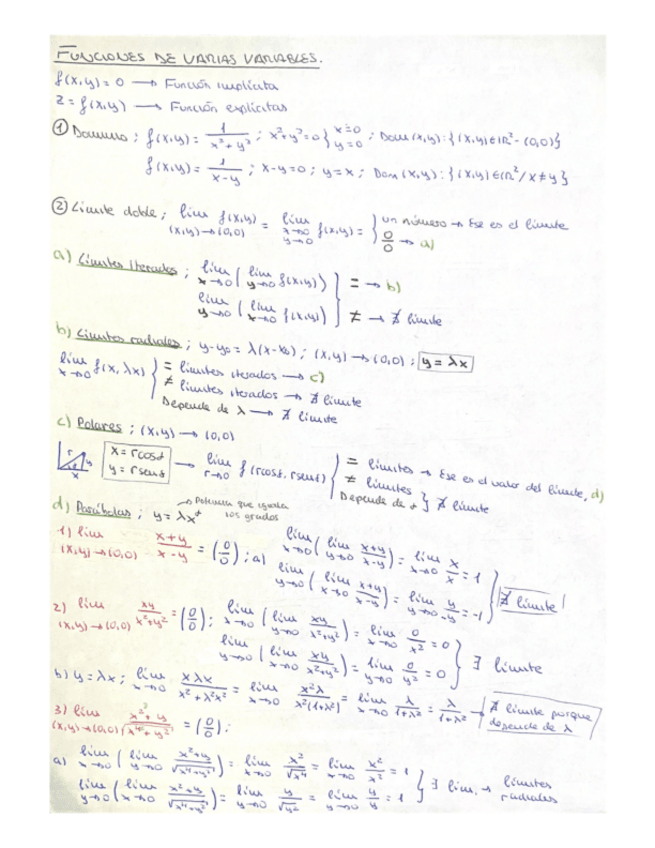 FUNCIONES DE VARIAS VARIABLES.
f(x,y) = 0 → Función implícita
z = f(x,y) → Función explícitas
① Dominio ; f(x,y) = 1/(x²+y²) ; x²+y²=0 } x=0 y=0 ; Dom(x,y): {(x,y)∈ℝ² - (0,0)}
f(x,y) = 1/(x-y) ; x-y=0 ; y=x ; Dom(x,y): {(x,y)∈ℝ² / x≠y}
② Límite doble ; lím (x,y)→(0,0) f(x,y) = lím x→0 y→0 f(x,y) = { un número → Ese es el límite
0/0 → a)
a) Límites iterados ; lím x→0 ( lím y→0 f(x,y) ) } = → b)
lím y→0 ( lím x→0 f(x,y) ) } ≠ → ∄ límite
b) Límites radiales ; y-y₀ = λ(x-x₀) ; (x,y) → (0,0) ; y = λx
lím x→0 f(x, λx) { = límites iterados → c)
≠ límites iterados → ∄ límite
Depende de λ → ∄ límite
c) Polares ; (x,y) → (0,0)
r y x
x = r cos t
y = r sen t
→ lím r→0 f(r cos t, r sen t) { = límites → Ese es el valor del límite, d)
≠ límites
Depende de t } ∄ límite
d) Parábolas ; y = λx⁺ → Potencia que iguala los grados
1) lím (x,y)→(0,0) (x+y)/(x-y) = (0/0) ; a) lím x→0 ( lím y→0 (x+y)/(x-y) ) = lím x→0 x/x = 1
lím y→0 ( lím x→0 (x+y)/(x-y) ) = lím y→0 y/-y = -1 } ∄ límite
2) lím (x,y)→(0,0) xy/(x²+y²) = (0/0) ; lím x→0 ( lím y→0 xy/(x²+y²) ) = lím x→0 0/x² = 0
lím y→0 ( lím x→0 xy/(x²+y²) ) = lím y→0 0/y² = 0 } ∃ límite
b) y = λx ; lím x→0 xλx/(x²+λ²x²) = lím x→0 x²λ/(x²(1+λ²)) = lím x→0 λ/(1+λ²) = λ/(1+λ²) → ∄ límite porque depende de λ
3) lím (x,y)→(0,0) (x²+y)/√(x⁴+y²) = (0/0) :
a) lím x→0 ( lím y→0 (x²+y)/√(x⁴+y²) ) = lím x→0 x²/√x⁴ = lím x→0 x²/x² = 1
lím y→0 ( lím x→0 (x²+y)/√(x⁴+y²) ) = lím y→0 y/√y² = lím y→0 y/y = 1 } ∃ lím. → límites radiales